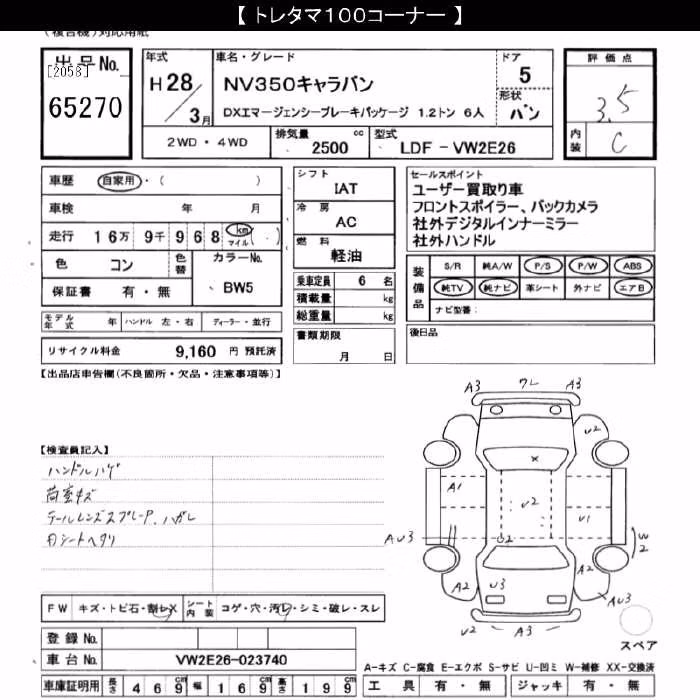 【 トレタマ100コーナー 】
(複合機)対応用紙
出品No.
[2058]
65270
年式
H28/3月
車名・グレード
NV350キャラバン
DXエマージェンシーブレーキパッケージ 1.2トン 6人
ドア
5
形状
バン
評価点
3.5
内装
C
2WD・4WD
排気量
2500 cc
型式
LDF - VW2E26
車歴 自家用・( )
車検 年 月
走行 16万 9千 968 km マイル ( . )
色 コン
色替
カラーNo.
BW5
保証書 有・無
モデル年式 年
ハンドル 左・右
ディーラー・並行
リサイクル料金 9,160 円 預託済
シフト
IAT
冷房
AC
燃料
軽油
乗車定員 6 名
積載量 kg
総重量 kg
書類期限
月 日
セールスポイント
ユーザー買取り車
フロントスポイラー、バックカメラ
社外デジタルインナーミラー
社外ハンドル
装備品
S/R 純A/W P/S P/W ABS
純TV 純ナビ 革シート 外ナビ エアB
ナビ型番:
後日品
【出品店申告欄(不良箇所・欠品・注意事項等)】
【検査員記入】
ハンドルハゲ
荷室キズ
テールレンズスプレーP.ハガレ
内シートヘタリ
FW キズ・トビ石・割レX
シート内装 コゲ・穴・汚レ・シミ・破レ・スレ
登録No.
車台No. VW2E26-023740
車庫証明用 長さ 469cm 幅 169cm 高さ 199cm
A3 ワレ A3
U2
X
A1
U2
U1
AU3
U2
W2
A2
U3
A2
AU3
U2 A3
スペア
A-キズ C-腐食 E-エクボ S-サビ U-凹ミ W-補修 XX-交換済
工具 有・無 ジャッキ 有・無